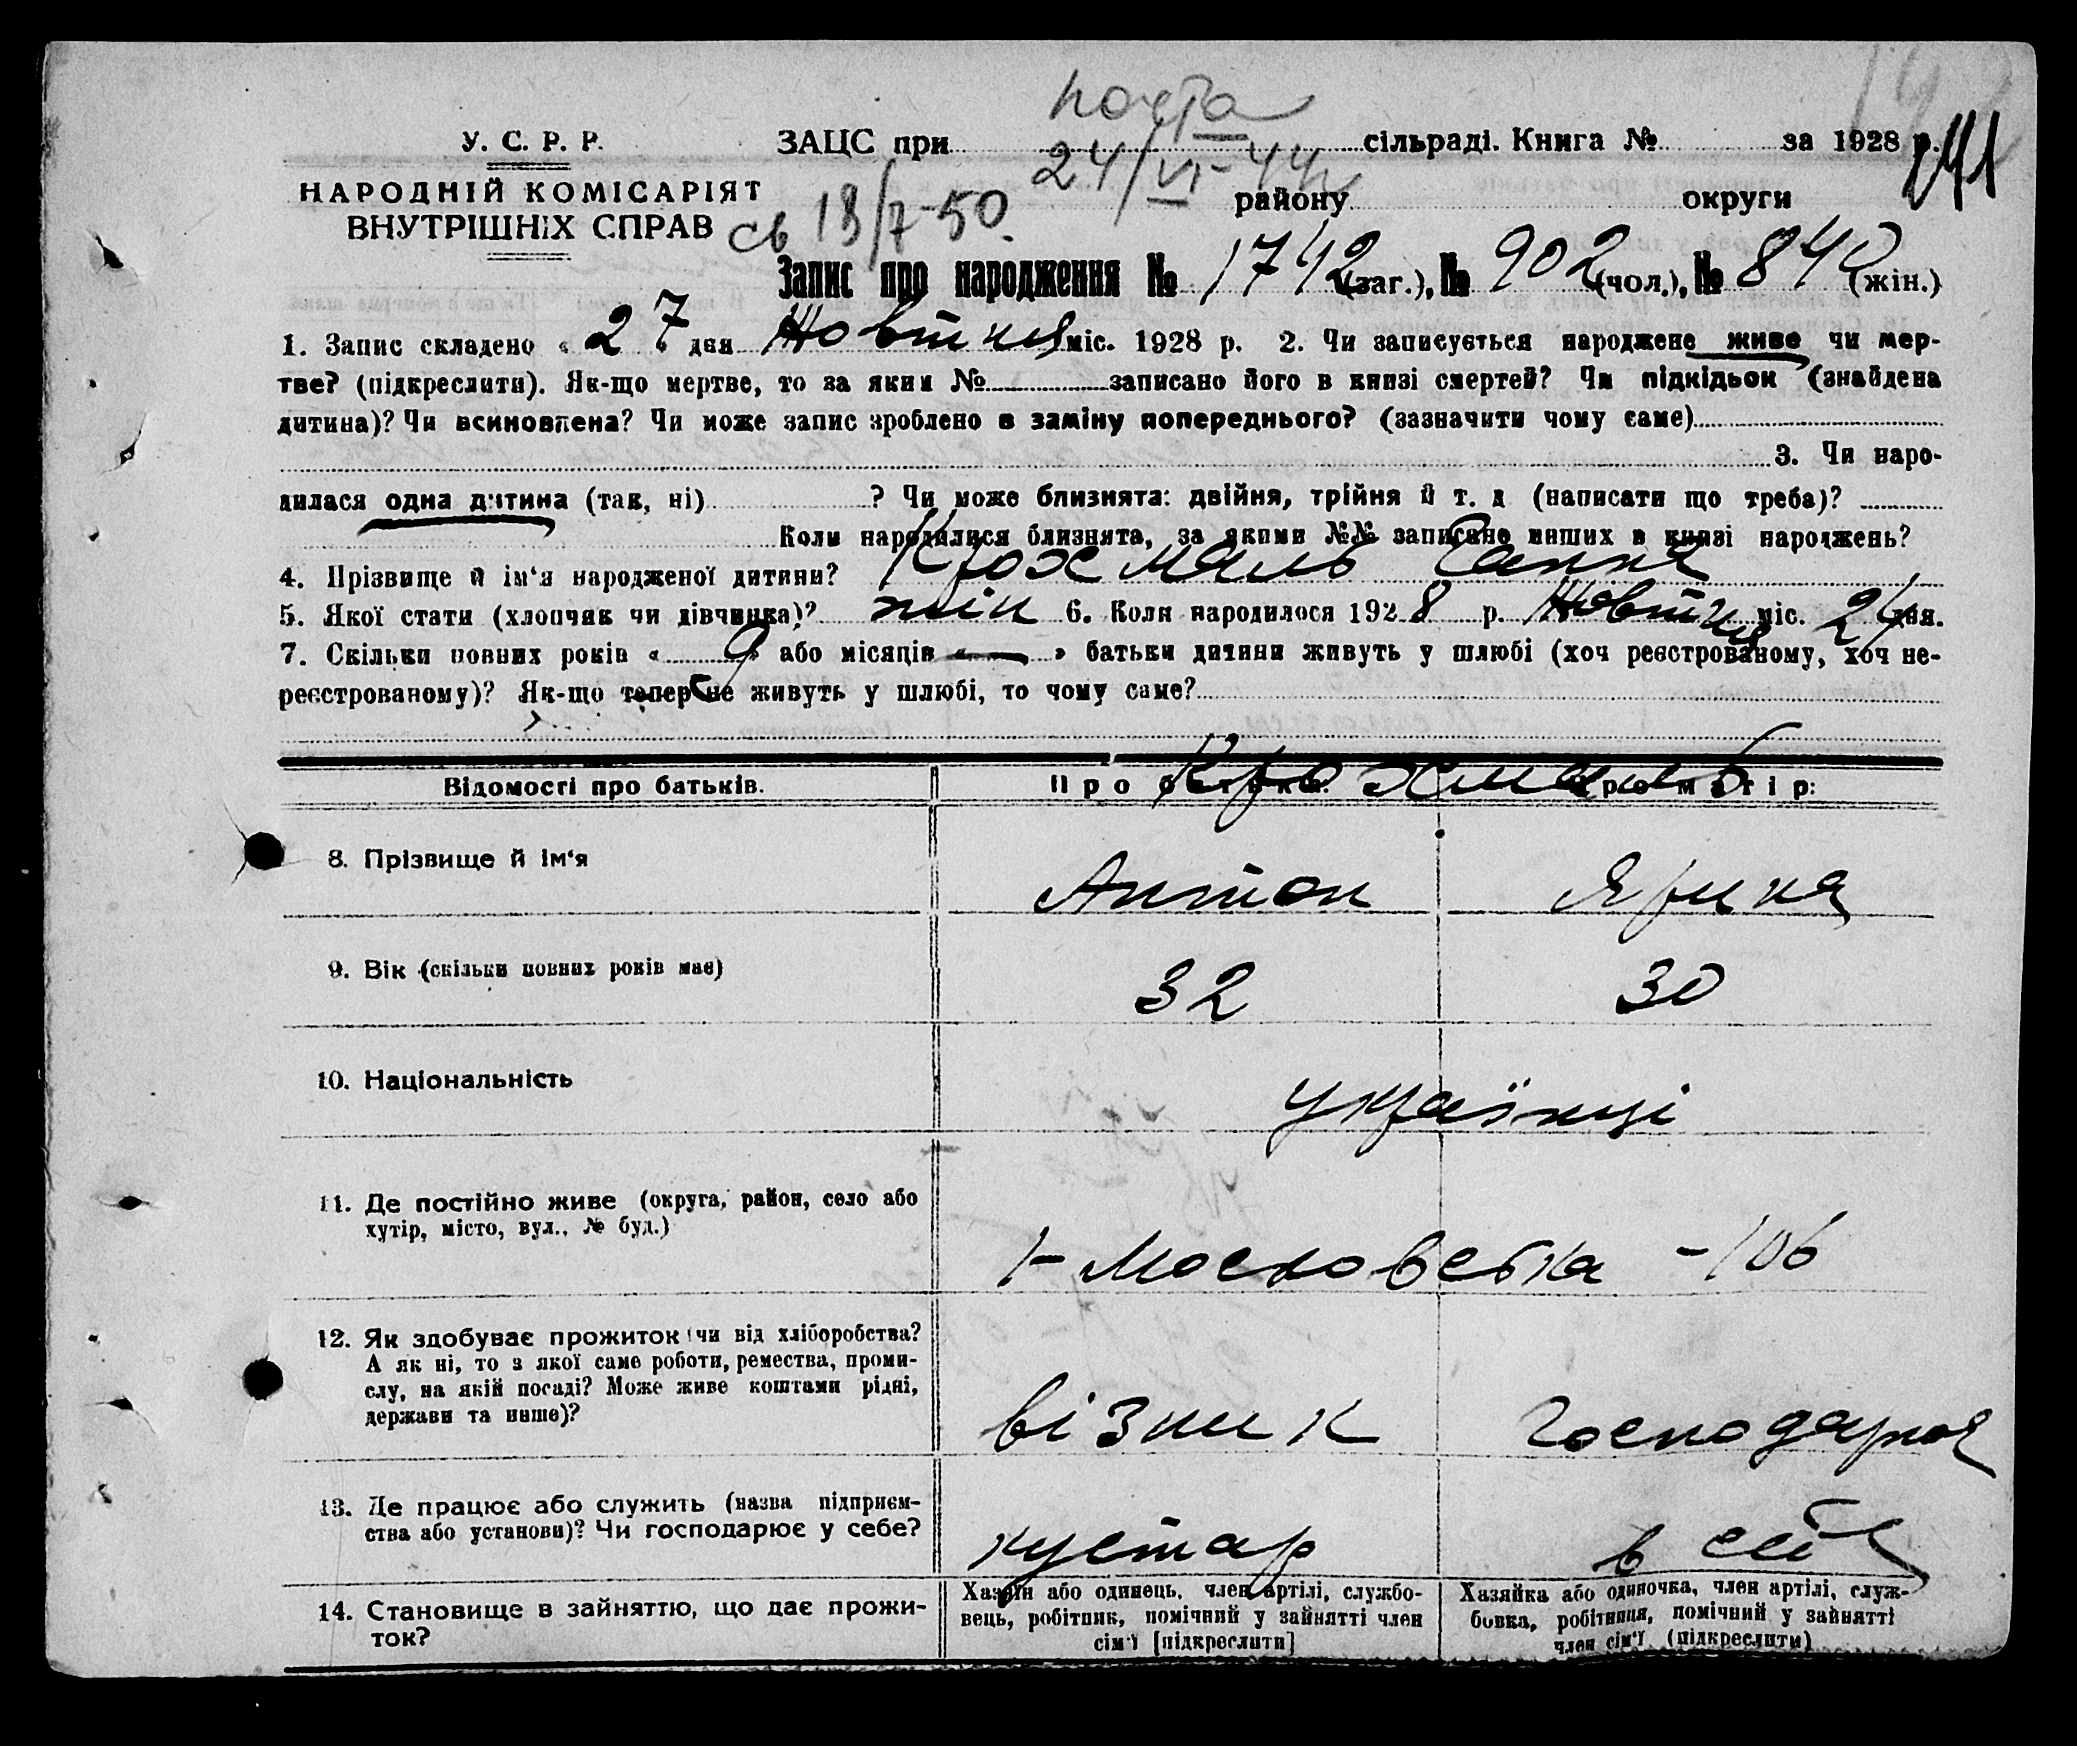 почта
У. С. Р. Р. ЗАЦС при сільраді. Книга № за 1928 р. 141
24/VI-44
НАРОДНІЙ КОМІСАРІЯТ району округи
ВНУТРІШНІХ СПРАВ св 13/7-50.
Запис про народження № 1742 (заг.), № 902 (чол.), № 840 (жін.)
1. Запис складено « 27 » дня Жовтня міс. 1928 р. 2. Чи записується народжене живе чи мер-
тве? (підкреслити). Як-що мертве, то за яким № записано його в книзі смертей? Чи підкідьок (знайдена
дитина)? Чи всиновлена? Чи може запис зроблено в заміну попереднього? (зазначити чому саме)
3. Чи наро-
дилася одна дитина (так, ні) ? Чи може близнята: двійня, трійня й т. д (написати що треба)?
Коли народилися близнята, за якими №№ записано инших в книзі народжень?
4. Прізвище й ім'я народженої дитини? Крохмаль Ганна
5. Якої стати (хлопчик чи дівчинка)? жін 6. Коли народилося 1928 р. Жовтня міс. 24 дня.
7. Скільки повних років « 9 » або місяців « — » батьки дитини живуть у шлюбі (хоч реєстрованому, хоч не-
реєстрованому)? Як-що тепер не живуть у шлюбі, то чому саме?
Крохмаль
Відомості про батьків. Про батька: Про матір:
8. Прізвище й ім'я Антон Ярина
9. Вік (скільки повних років має) 32 30
10. Національність українці
11. Де постійно живе (округа, район, село або
хутір, місто, вул., № буд.)
1-Московська -106
12. Як здобуває прожиток (чи від хліборобства?
А як ні, то з якої саме роботи, ремества, проми-
слу, на якій посаді? Може живе коштами рідні,
держави та инше)?
візник господарка
13. Де працює або служить (назва підприєм-
ства або установи)? Чи господарює у себе?
кустар в сім
14. Становище в зайняттю, що дає прожи-
ток?
Хазяїн або одинець, член артілі, службо-
вець, робітник, помічний у зайнятті член
сім'ї [підкреслити]
Хазяйка або одиночка, член артілі, служ-
бовка, робітниця, помічний у зайнятті
член сім'ї (підкреслити)